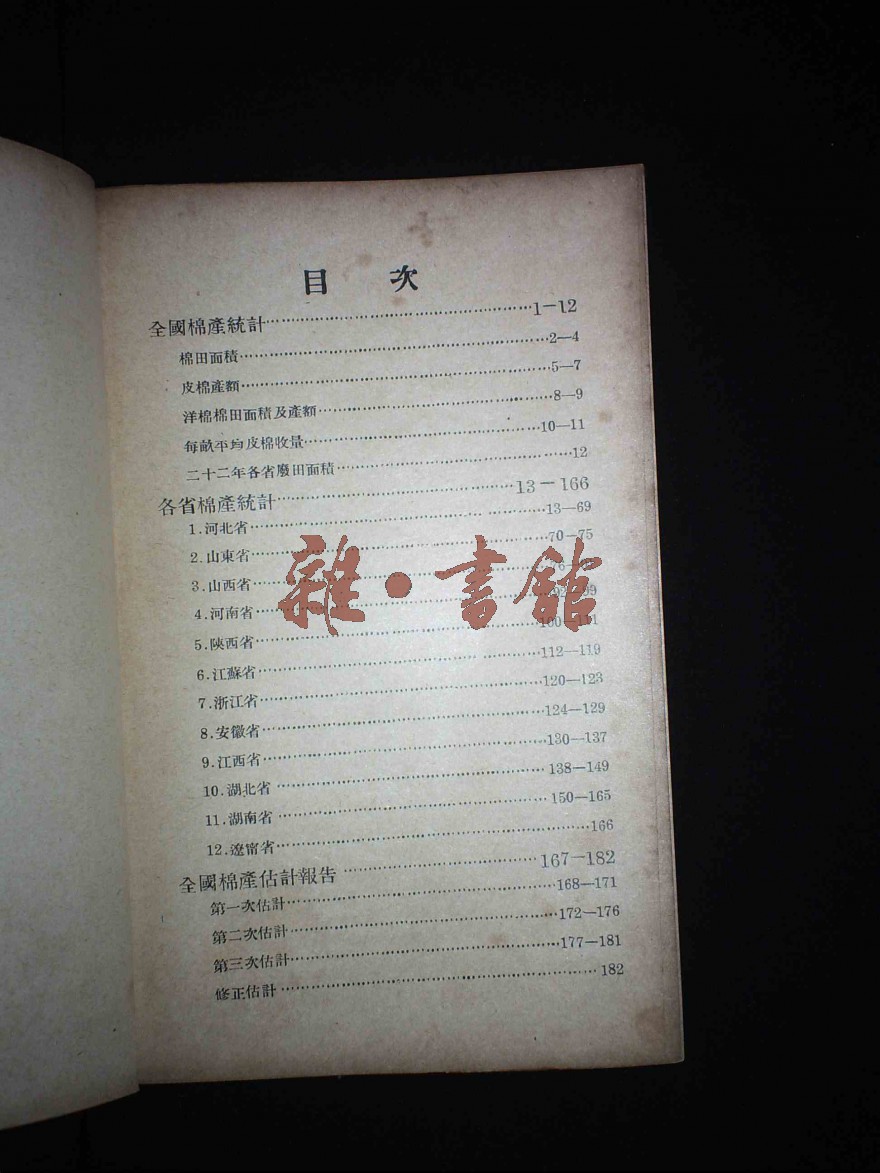 目 次
全國棉產統計……1—12
棉田面積……2—4
皮棉產額……5—7
洋棉棉田面積及產額……8—9
每畝平均皮棉收量……10—11
二十二年各省廢田面積……12
各省棉產統計……13—166
1.河北省……13—69
2.山東省……70—75
3.山西省……76—
4.河南省……92—99
5.陝西省……100—111
6.江蘇省……112—119
7.浙江省……120—123
8.安徽省……124—129
9.江西省……130—137
10.湖北省……138—149
11.湖南省……150—165
12.遼甯省……166
全國棉產估計報告……167—182
第一次估計……168—171
第二次估計……172—176
第三次估計……177—181
修正估計……182
雜·書館